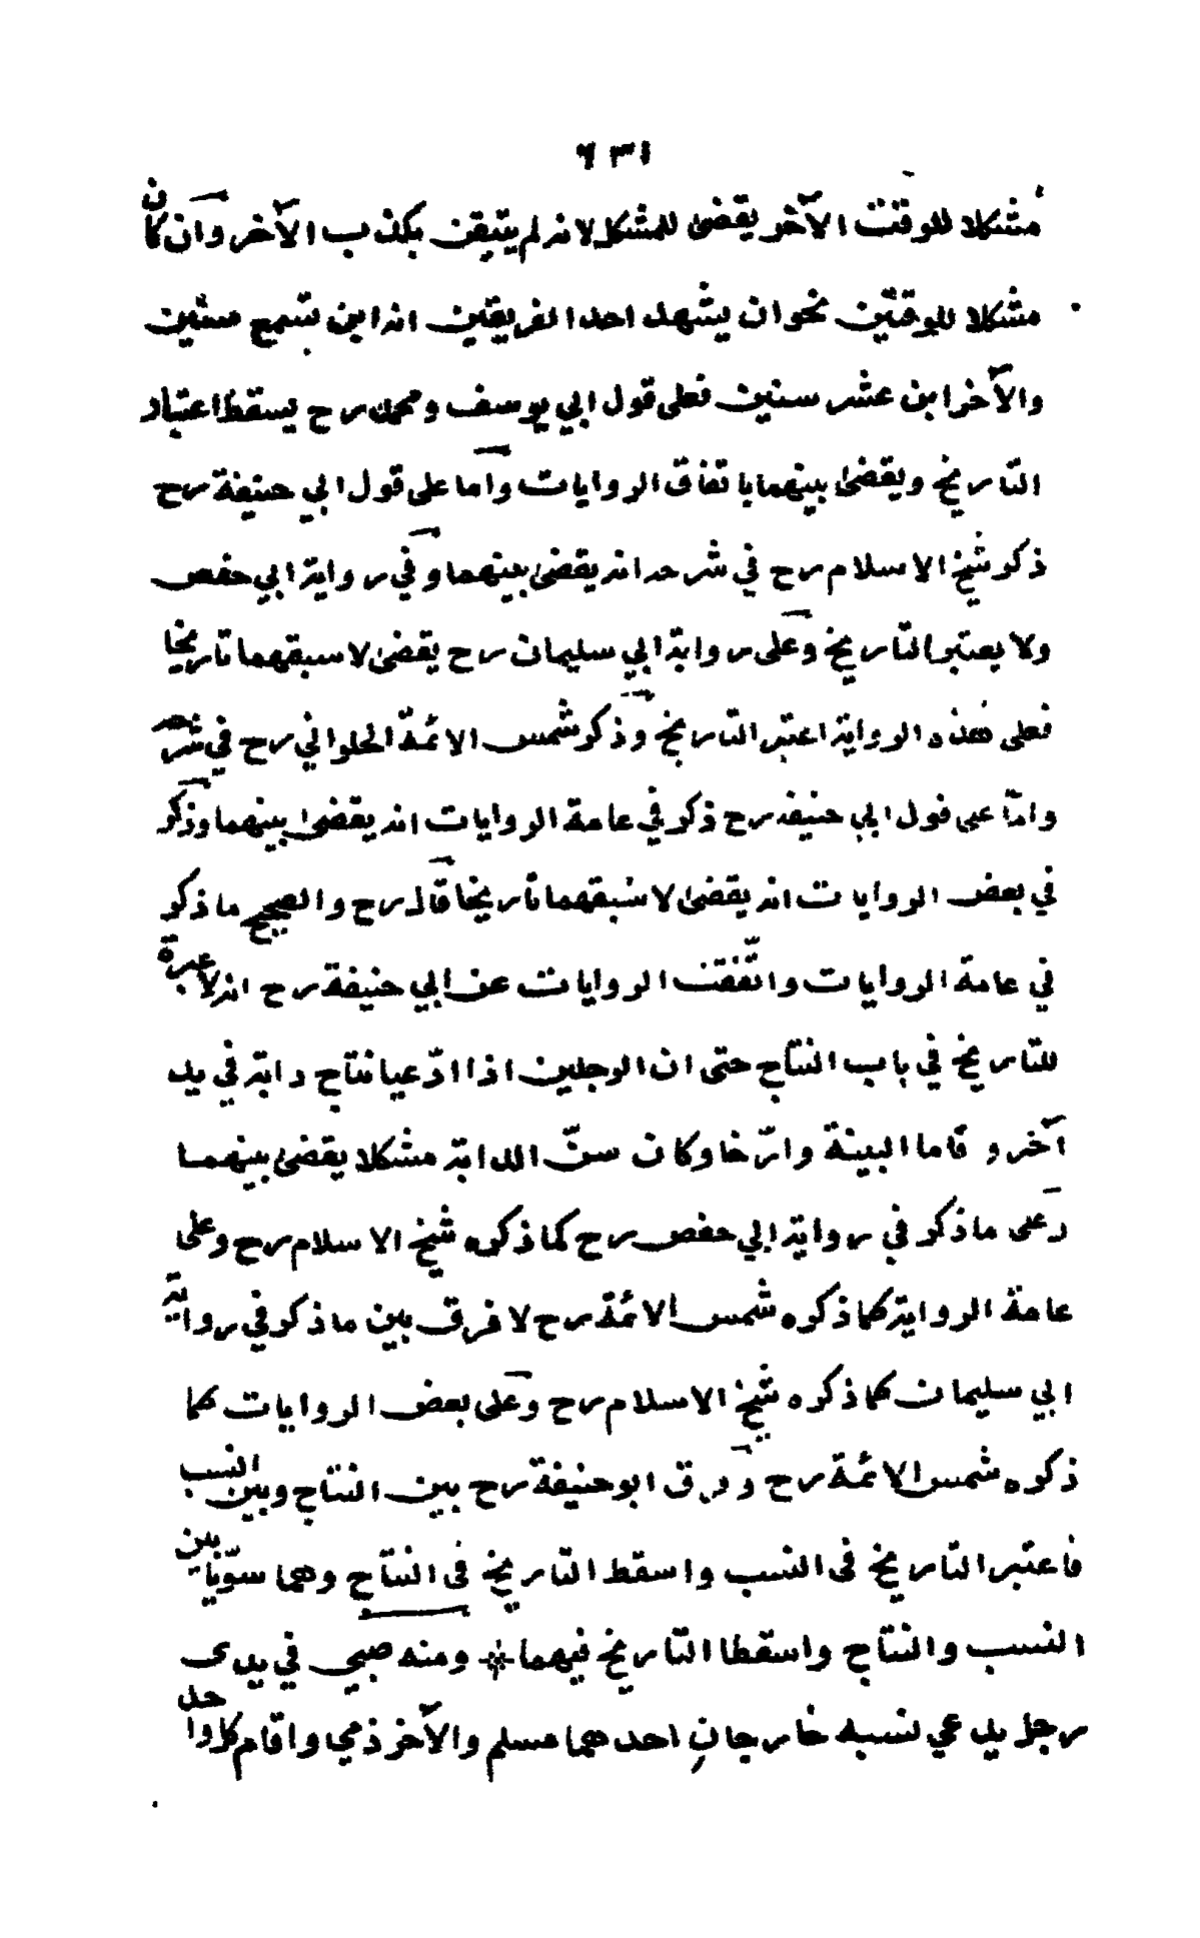 ٦٣١
مشكلا للوقت الآخر يقضى للمشكل لانه لم يتيقن بكذب الآخر وان كان
مشكلا للوقتين نحو ان يشهد احد الفريقين انه ابن تسع سنين
والآخر ابن عشر سنين فعلى قول ابي يوسف ومحمد رح يسقط اعتبار
التاريخ ويقضى بينهما باتفاق الروايات واما على قول ابي حنيفة رح
ذكر شيخ الاسلام رح في شرحه انه يقضى بينهما وفي رواية ابي حفص
ولا يعتبر التاريخ وعلى رواية ابي سليمان رح يقضى لاسبقهما تاريخا
فعلى هذه الرواية اعتبر التاريخ وذكر شمس الائمّة الحلواني رح في شرحه
وامّا على قول ابي حنيفه رح ذكر في عامة الروايات انه يقضى بينهما وذكر
في بعض الروايات انه يقضى لاسبقهما تاريخا قال رح والصحيح ما ذكر
في عامة الروايات واتّفقت الروايات عن ابي حنيفة رح انه لا عبرة
للتاريخ في باب النتاج حتى ان الرجلين اذا ادّعيا نتاج دابة في يد
آخر و قاما البينة وارّخا وكان سنّ الدابة مشكلا يقضى بينهما
وعلى ما ذكر في رواية ابي حفص رح كما ذكره شيخ الاسلام رح وعلى
عامة الرواية كما ذكره شمس الائمة رح لا فرق بين ما ذكر في رواية
ابي سليمان كما ذكره شيخ الاسلام رح وعلى بعض الروايات كما
ذكره شمس الائمة رح وفرق ابو حنيفة رح بين النتاج وبين النسب
فاعتبر التاريخ فى النسب واسقط التاريخ فى النتاج وهما سوّيا بين
النسب والنتاج واسقطا التاريخ فيهما * ومنه صبي في يدى
رجل يدعي نسبه خارجانِ احدهما مسلم والآخر ذمي واقام كل واحد